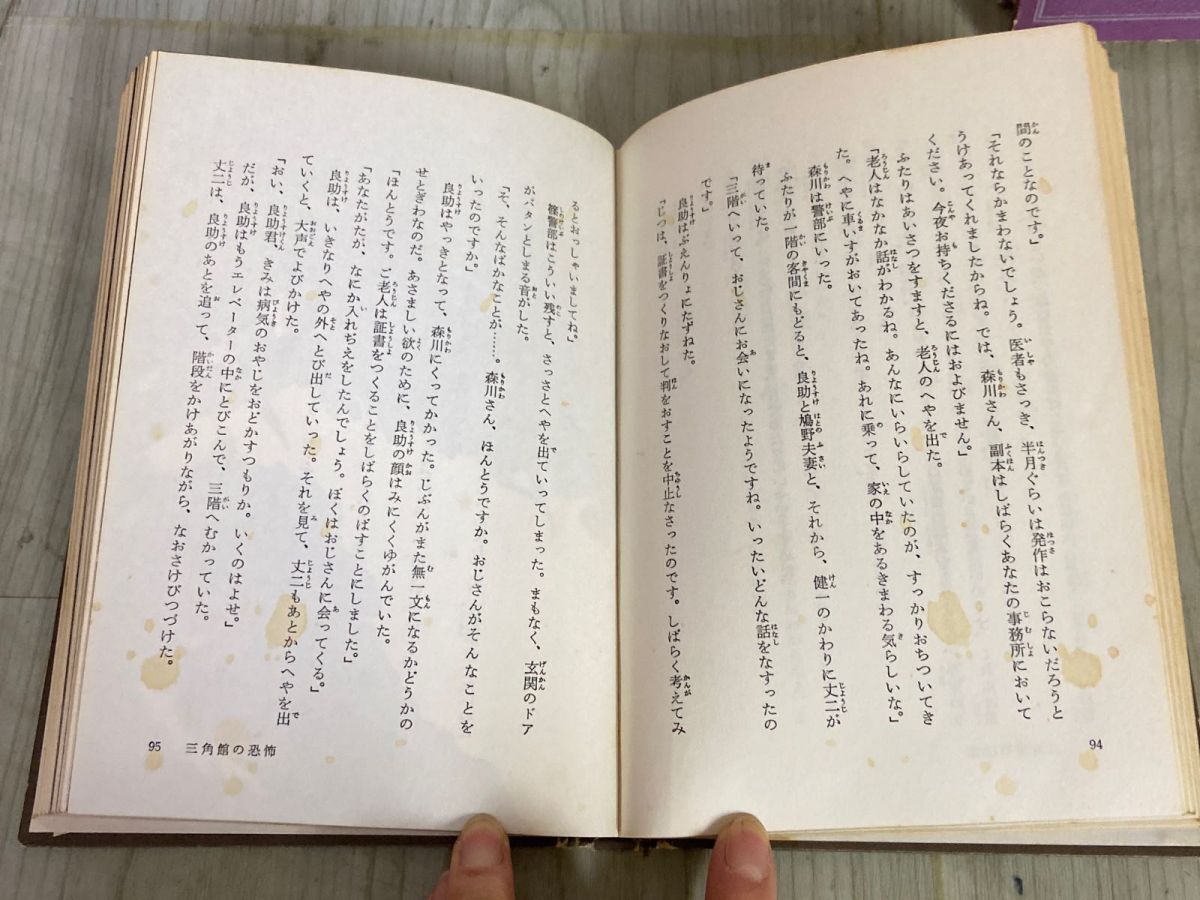 間のことなのです。」
「それならかまわないでしょう。医者もさっき、半月ぐらいは発作はおこらないだろうと
うけあってくれましたからね。では、森川さん、副本はしばらくあなたの事務所において
ください。今夜お持ちくださるにはおよびません。」
ふたりはあいさつをすますと、老人のへやを出た。
「老人はなかなか話がわかるね。あんなにいらいらしていたのが、すっかりおちついてき
た。へやに車いすがおいてあったね。あれに乗って、家の中をあるきまわる気らしいな。」
森川は警部にいった。
ふたりが一階の客間にもどると、良助と鳩野夫妻と、それから、健一のかわりに丈二が
待っていた。
「三階へいって、おじさんにお会いになったようですね。いったいどんな話をなすったの
です。」
良助はぶえんりょにたずねた。
「じつは、証書をつくりなおして判をおすことを中止なさったのです。しばらく考えてみ
94
るとおっしゃいましてね。」
篠警部はこういい残すと、さっさとへやを出ていってしまった。まもなく、玄関のドア
がバタンとしまる音がした。
「そ、そんなばかなことが……。森川さん、ほんとうですか。おじさんがそんなことを
いったのですか。」
良助はやっきとなって、森川にくってかかった。じぶんがまた無一文になるかどうかの
せとぎわなのだ。あさましい欲のために、良助の顔はみにくくゆがんでいた。
「ほんとうです。ご老人は証書をつくることをしばらくのばすことにしました。」
「あなたがたが、なにか入れぢえをしたんでしょう。ぼくはおじさんに会ってくる。」
良助は、いきなりへやの外へとび出していった。それを見て、丈二もあとからへやを出
ていくと、大声でよびかけた。
「おい、良助君、きみは病気のおやじをおどかすつもりか。いくのはよせ。」
だが、良助はもうエレベーターの中にとびこんで、三階へむかっていた。
丈二は、良助のあとを追って、階段をかけあがりながら、なおさけびつづけた。
95 三角館の恐怖